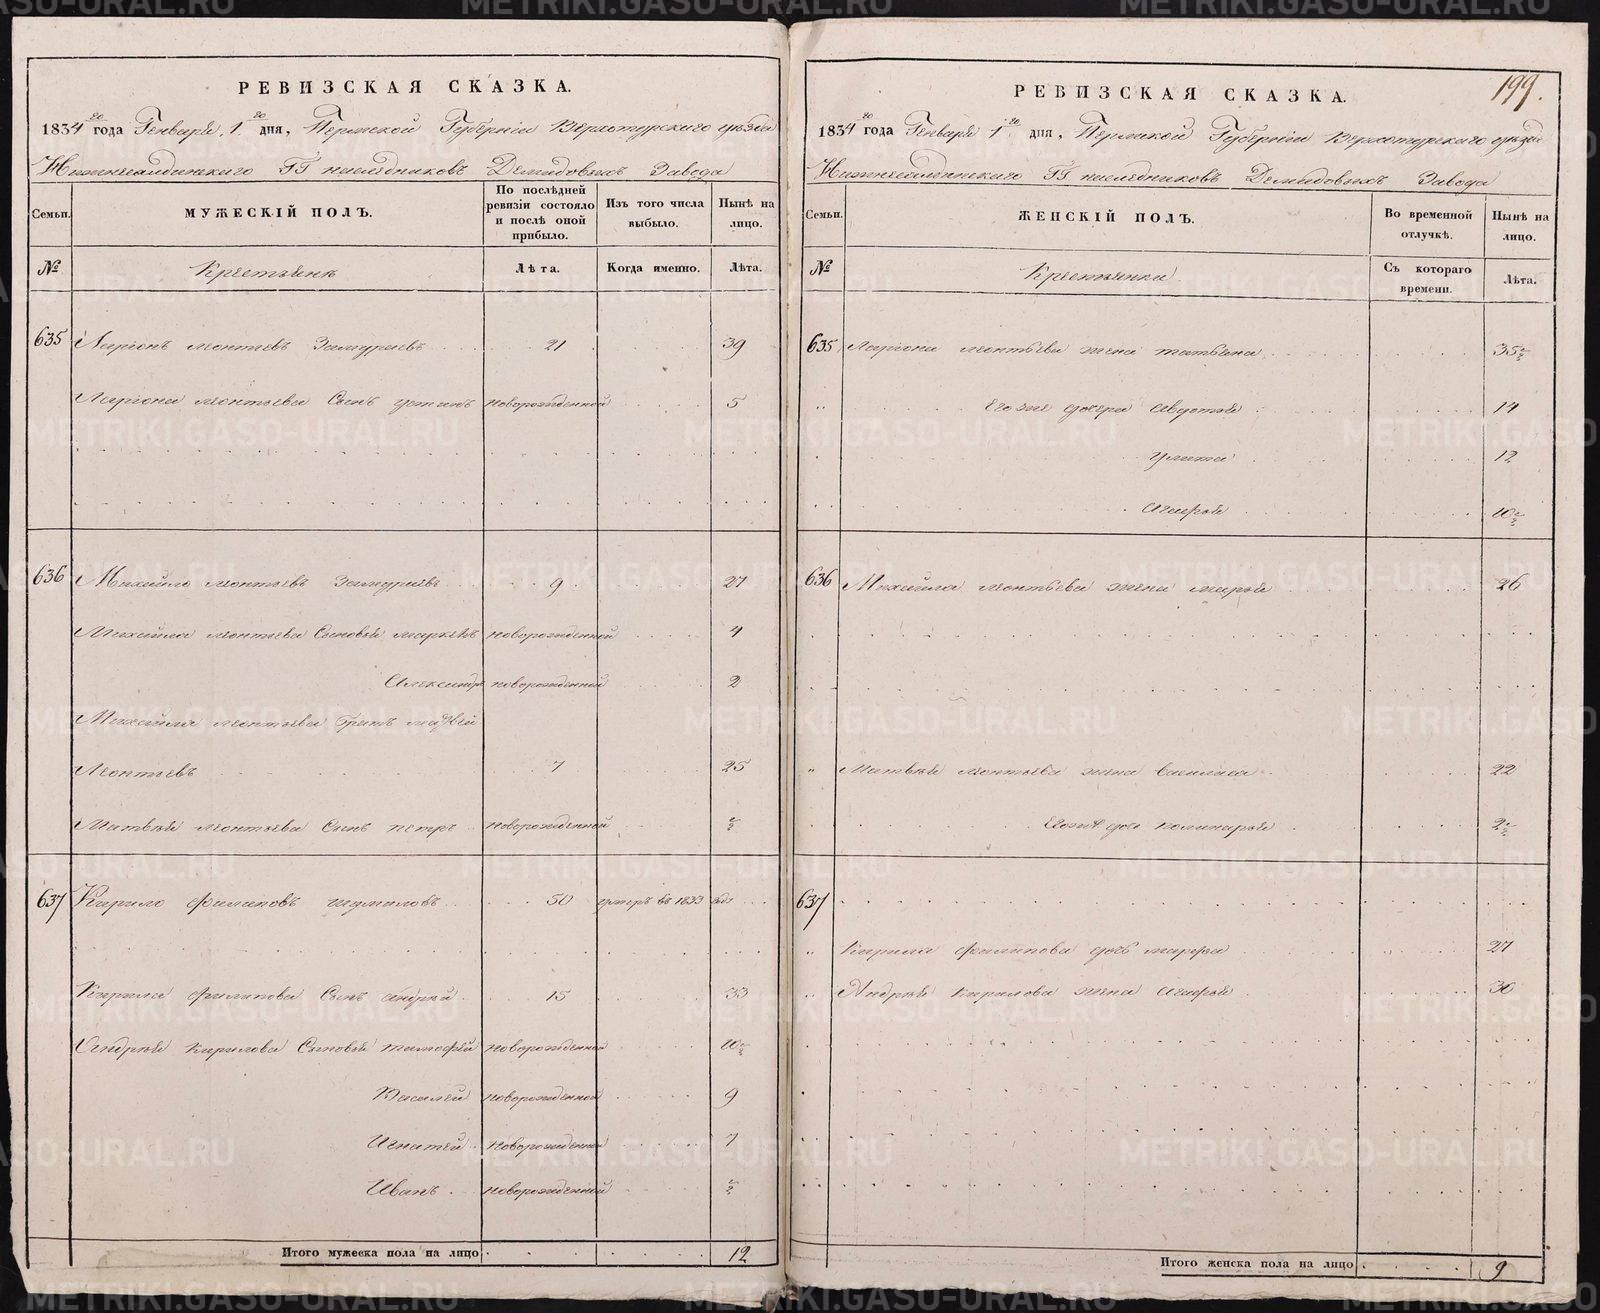 РЕВИЗСКАЯ СКАЗКА.
1834 го года Генваря 1 го дня, Пермской Губернiи Верхотурского уѣзда
Нижнесалдинскаго ГГ наслѣдниковъ Демидовыхъ Завода
Семьи.
МУЖЕСКІЙ ПОЛЪ.
По послѣдней ревизіи состояло и послѣ оной прибыло.
Изъ того числа выбыло.
Нынѣ на лицо.
№
Крестьянѣ
Лѣта.
Когда именно.
Лѣта.
635 Ларiонъ Леонтьевъ Замураевъ 21 39
Ларiона Леонтьева Сынъ устинъ новорожденной 5
636 Михайло Леонтьевъ Замураевъ 9 27
Михайла Леонтьева Сыновья маркелъ новорожденной 4
Александръ новорожденной 2
Михайла Леонтьева братъ матвей
Леонтьевъ 7 25
Матвѣя Леонтьева Сынъ петръ новорожденной ½
637 Кирило Филиповъ Шумиловъ 50 умеръ въ 1833
Кирила Филипова Сынъ андрей 15 33
Андрѣя Кирилова Сыновья тимофей новорожденной 10½
Василей новорожденной 9
Игнатей новорожденной 7
Иванъ новорожденной ½
Итого мужеска пола на лицо 12
199.
РЕВИЗСКАЯ СКАЗКА.
1834 го года Генваря 1 го дня, Пермской Губернiи Верхотурскаго уѣзда
Нижнесалдинскаго ГГ наслѣдниковъ Демидовыхъ Завода
Семьи.
ЖЕНСКІЙ ПОЛЪ.
Во временной отлучкѣ.
Нынѣ на лицо.
№
Крестьянки
Съ котораго времени.
Лѣта.
635 Ларiона Леонтьева жена татьяна 35½
" Его же дочери авдотья 14
улита 12
Агафья 10½
636 Михайла Леонтьева жена марья 26
" Матвѣя Леонтьева жена василиса 22
Его же дочь 2½
637
" Кирила Филипова дочь марфа 27
" Андрѣя Кирилова жена агафья 30
Итого женска пола на лицо 9
METRIKI.GASO-URAL.RU